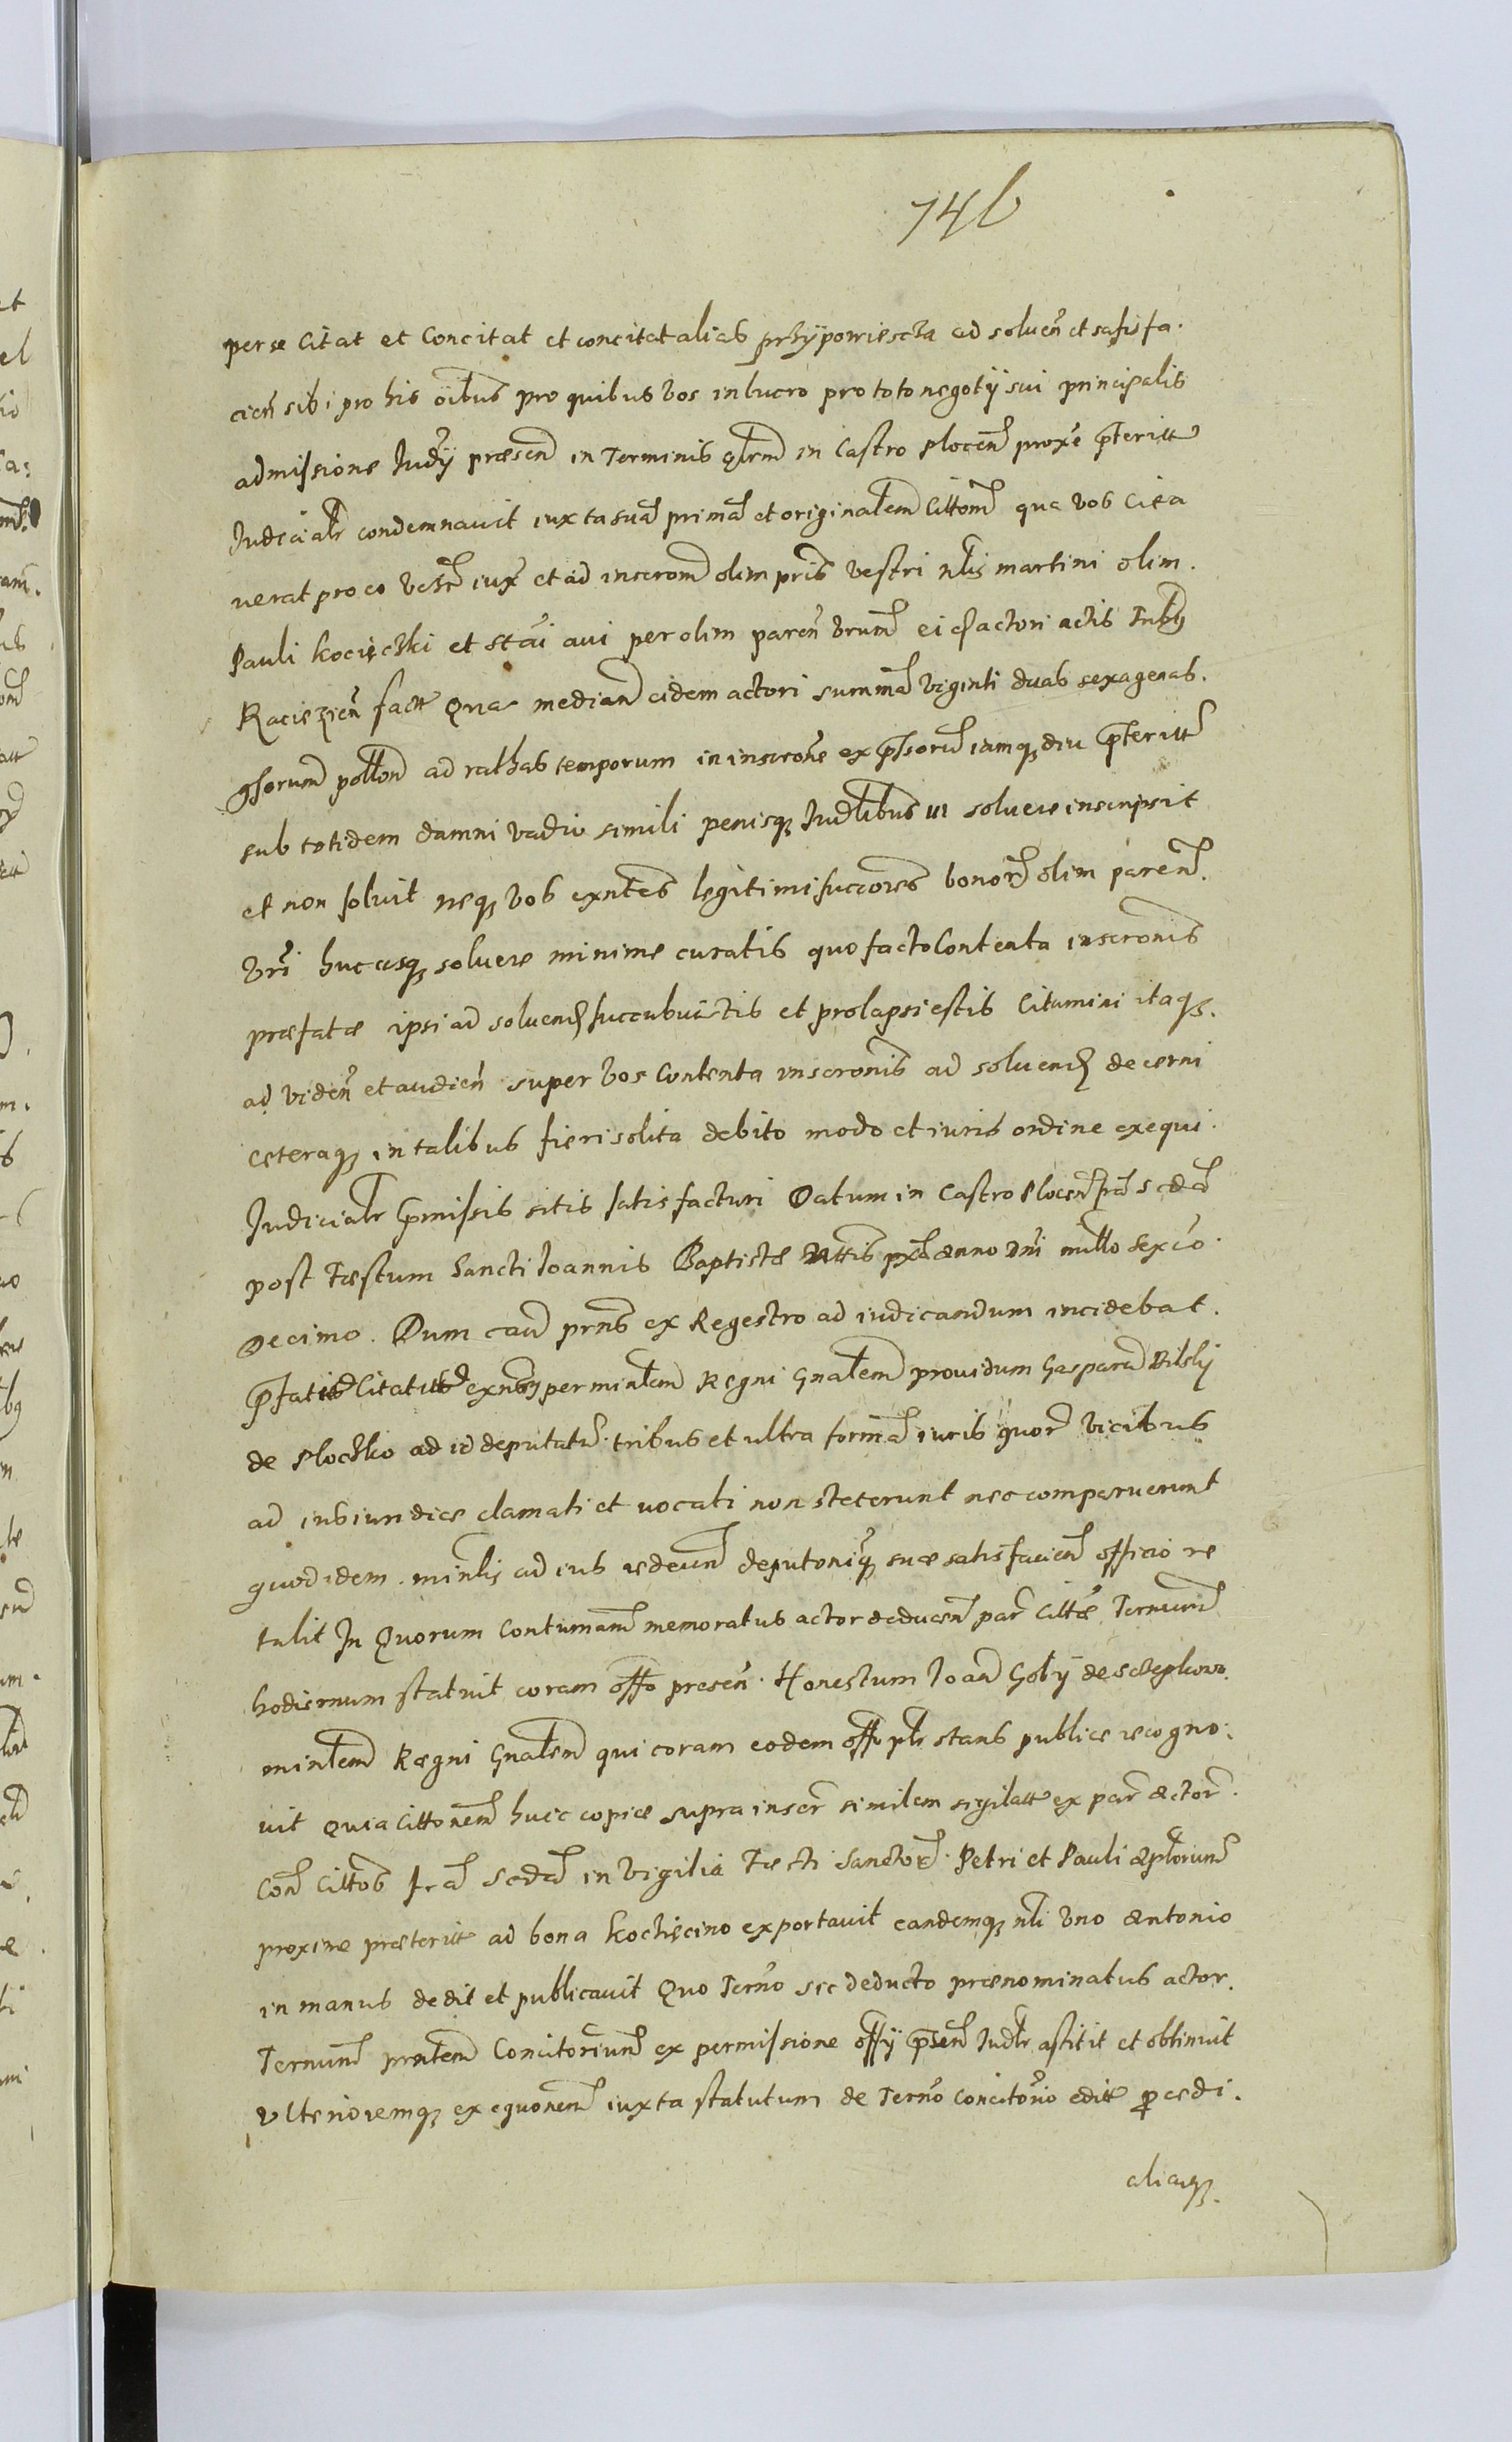 74b
per se Citat et Concitat et concitat alias przÿpowiescza ad soluen̄ et satisfa.
cien̄ sibi pro his oībus pro quibus vos in lucro pro toto negotÿ sui principalis
admissione Judÿ præsen̄ in Terminis qlrm̄ in Castro plocen̄ proxe p̄teritt
Judicialr condemnauit iuxta suā primā et originalem Cittom̄ qua vos Cita
uerat pro eo vestr̄ iux et ad inscrom̄ olim pris vestri nlis martini olim.
Pauli kocięczki et stāi aui per olim paren̄ vrum̄ ei actori actis
Raciezien̄ fact Qua median̄ eidem actori summā viginti duas sexagenas.
grorum pollon̄ ad rathas temporum in inscrone expssorū iamq diu p̄teritt
sub totidem damni vadio simili penisq Judlibus soluere inscripsit
et non soluit neq vos exntes legitimi succores bonorū olim paren̄.
vri hucusq soluere minime curatis quo facto Contenta inscronis
præfatæ ipsi ad soluend succubuistis et prolapsi estis Citamini itaq.
ad viden̄ et audien̄ super vos Contenta inscronis ad soluend decerni
ceteraq in talibus fieri solita debito modo et iuris ordine exequi.
Judicialr p̄missis sitis satisfacturi Datum in Castro Plocen̄ fr̄a scdā
post Fæstum Sancti Joannis Baptistæ pxā anno Dni millo sexco
Decimo. Dum cau prns ex Regestro ad iudicandum incidebat.
p̄fati Citati per minlem Regni Gnalem prouidum Gasparū Bilsky
de Ploczko ad id deputatū tribus et ultra formā iuris quor vicibus
ad ius iuridice clamati et uocati non steterunt nec comparuerunt
quod idem. minlis ad ius redeun̄ deputoniq suæ satisfacien̄ officio re
tulit In Quorum Contumam̄ memoratus actor deducen̄ par Cittæ Termum̄
hodiernum statuit coram offo presen̄. Honestum Joan̄ Goly de
minlem Regni Gnalem qui coram eodem offo plr stans publice recogno.
uit Quia Cittonem huic copiæ supra inser similem sigilatt ex par actor.
Con̄ Cittos fr̄a Scdā in Vigilia Fæsti Sanctorū. Petri et Pauli aplorum
proxime præteritt ad bona kochęcino exportauit eandemq nli vno Antonio
in manus dedit et publicauit Quo Termo sic deducto prænominatus actor.
Termum̄ prntem Concitorium̄ ex permissione offÿ p̄sen̄ Judlr astitit et obtinuit
Vlterioremq exequonem̄ iuxta statutum de Termo concitorio editt p̄cedi.
aliaq.